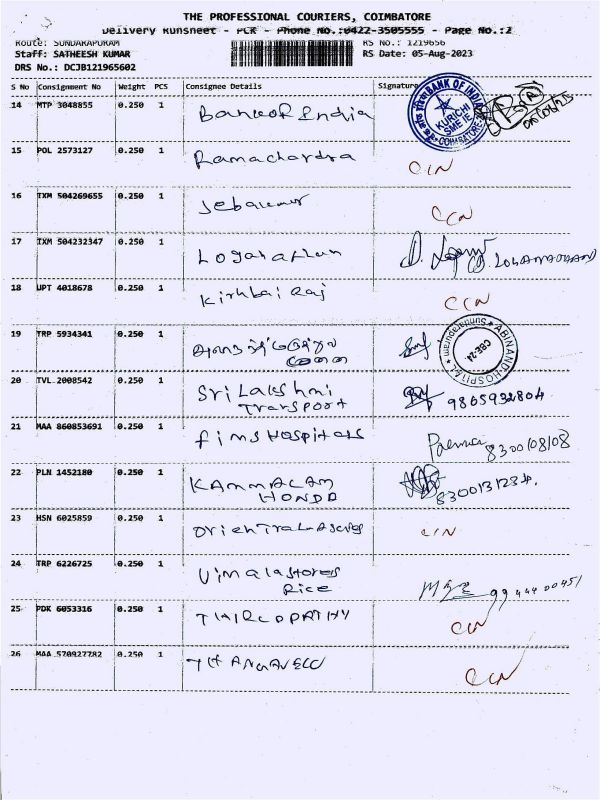 THE PROFESSIONAL COURIERS, COIMBATORE
Delivery Runsheet - PCR - Phone No.:0422-3505555 - Page No.:2
Route: SUNDARAPURAM RS No.: 1219656
Staff: SATHEESH KUMAR RS Date: 05-Aug-2023
DRS No.: DCJB121965602
S No Consignment No Weight PCS Consignee Details Signature
14 MTP 3048855 0.250 1 Bank of India
BANK OF INDIA
KURICHI
SME IE
COIMBATORE
15 POL 2573127 0.250 1 Ramachandra
16 TXM 504269655 0.250 1 Jebakumar
17 TXM 504232347 0.250 1 Loganathan
18 UPT 4018678 0.250 1 Kirthbai Raj
19 TRP 5934341 0.250 1
ABINAND HOSPITAL
Sundarapuram
CBE-24
20 TVL 2008542 0.250 1 Sri Lakshmi
Transport 9865932804
21 MAA 860853691 0.250 1 fims Hospitals
8300108108
22 PLN 1452180 0.250 1 KAMMALAM
HONDA
8300131234.
23 HSN 6025859 0.250 1
24 TRP 6226725 0.250 1 Vimala Stores
Rice
9944400451
25 PDK 6053316 0.250 1 THIRCOPATHY
26 MAA 570927782 0.250 1 THANGAVELU